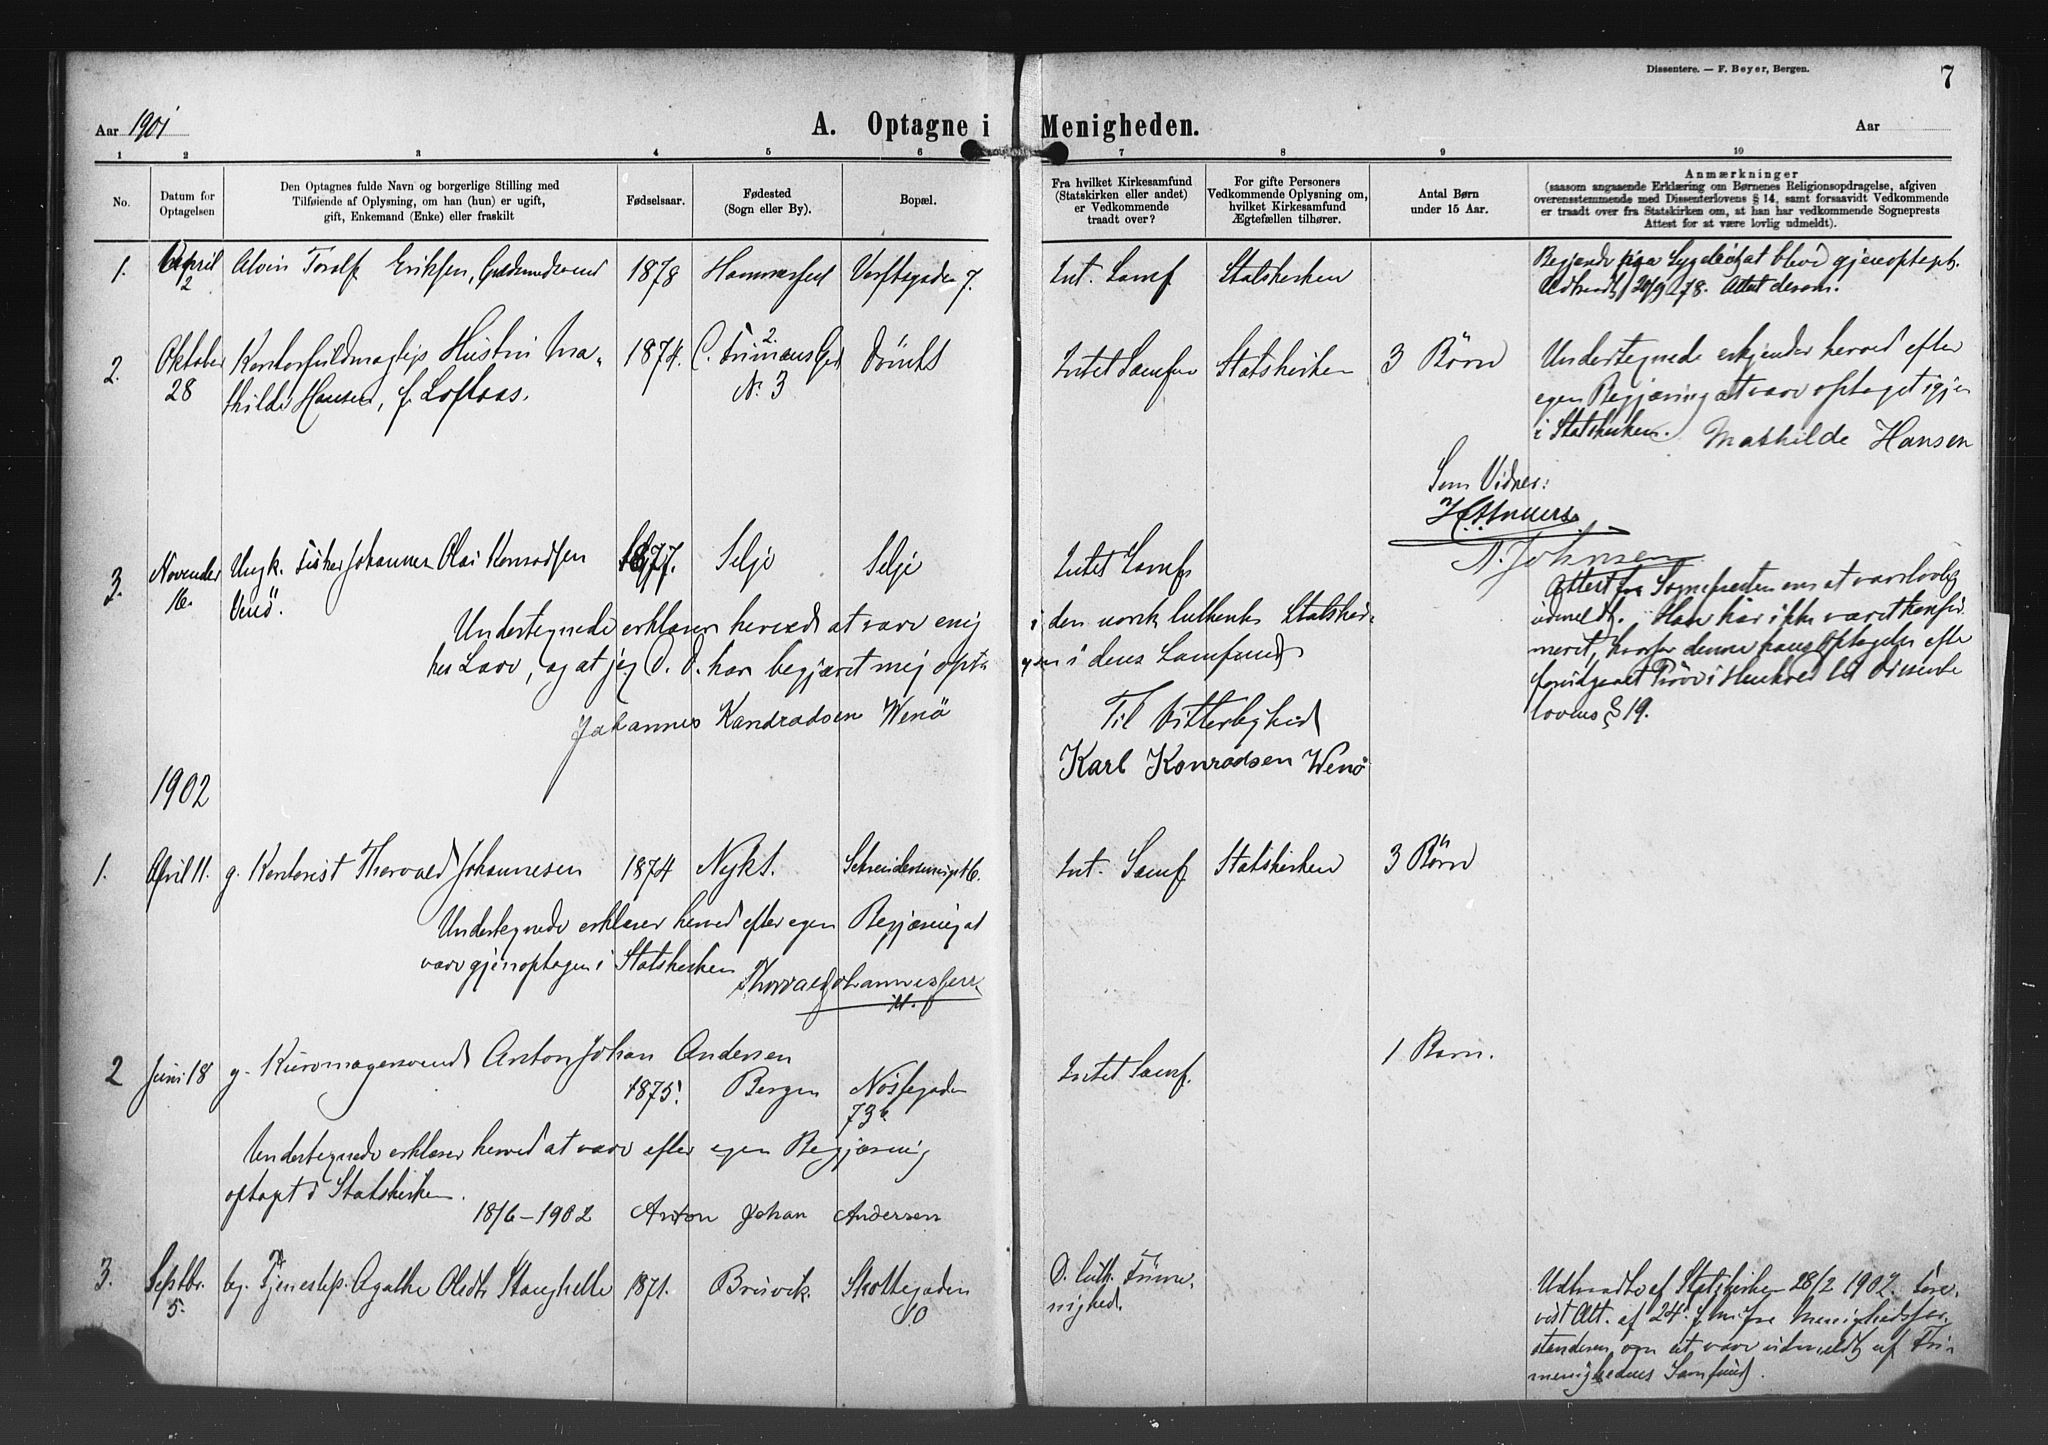 Dissentere. — F. Beyer, Bergen.
7
Aar 1901
A. Optagne i Menigheden.
Aar
1 2 3 4 5 6 7 8 9 10
No.
Datum for
Optagelsen
Den Optagnes fulde Navn og borgerlige Stilling med
Tilføiende af Oplysning, om han (hun) er ugift,
gift, Enkemand (Enke) eller fraskilt
Fødselsaar.
Fødested
(Sogn eller By).
Bopæl.
Fra hvilket Kirkesamfund
(Statskirken eller andet)
er Vedkommende
traadt over?
For gifte Personers
Vedkommende Oplysning om,
hvilket Kirkesamfund
Ægtefællen tilhører.
Antal Børn
under 15 Aar.
Anmærkninger
(saasom angaaende Erklæring om Børnenes Religionsopdragelse, afgiven
overensstemmende med Dissenterlovens § 14, samt forsaavidt Vedkommende
er traadt over fra Statskirken om, at han har vedkommende Sogneprests
Attest for at være lovlig udmeldt).
1. April 2 Alvin Toralf Eriksen, 1878 Hammerfest Verftsgaden 7. Int. Samf Statskirken
Begjærede paa Sygeleiet at blive gjenoptagt.
Udtraadt 20/9 78. Attest derom.
2. Oktober 28 Kontorfuldmægtigs Hustru Ma-
thilde Hansen, f. Loftaas.
1874. C. 2
N. 3
Intet Samfu Statskirken 3 Børn
Undertegnede erkjender herved efter
egen Begjæring at være optaget igjen
i Statskirken. Mathilde Hansen
Som Vidner:
A. Johnsen
3. November 16. Ungk. Fisker Johannes Olai Konradsen
Venö.
1877. Selje Selje Intet Samf
Attest fra Sognepresten om at være lovlig
udmeldt. Han har ikke været konfir
meret, hvorfor denne hans Optagelse efter
foridgaaet Prøve i Henhold til Dissenter
lovens § 19.
Undertegnede erklærer herved at være enig i den norsk lutherske Statskir-
kes Lære, og at jeg D. D. har begjæret mig opta
gen i dens Samfund
Johannes Kandradsen Wenö
Til Vitterlighed
Karl Konradsen Wenö
1902
1. April 11. g. Kontorist Thorvald Johannesen 1874 Nykt. 16. Int. Samf. Statskirken 3 Børn
Undertegnede erklærer herved efter egen Begjæring at
være gjenoptagen i Statskirken
Thorvald Johannessen
2 Juni 18 g. Anton Johan Andersen
1875. Bergen Nøstegaden
73b
Intet Samf. 1 Barn.
Undertegnede erklærer herved at være efter egen Begjæring
optagt i Statskirken.
18/6 – 1902 Anton Johan Andersen
3. Septbr. 5. Tjenestep. Agathe Olsdtr Stanghelle 1871. Bruvik. Skottegaden
10
D. luth. Frime-
nighed.
Udtraadte af Statskirken 28/2 1902. Fore-
vist Att. af 24. f. m. fra Menighedsfor-
standeren om at være udmeldt af Fri-
menighedens Samfund.